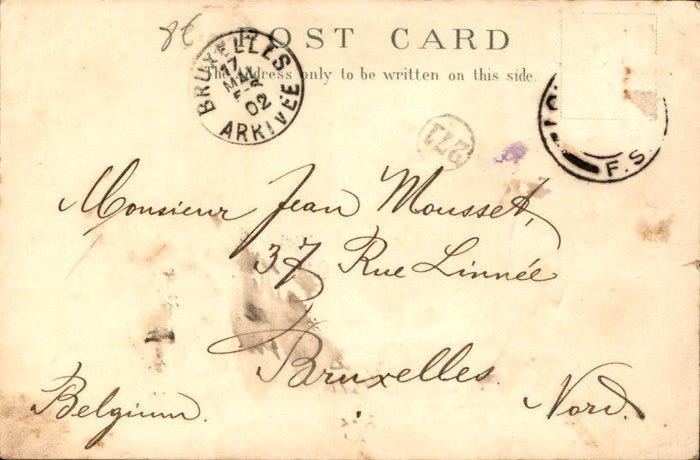 8€
POST CARD
The address only to be written on this side.
BRUXELLES
17
MAI
02
ARRIVÉE
271
F.S.
Monsieur Jean Mousset,
37 Rue Linnée
Bruxelles
Nord.
Belgium.